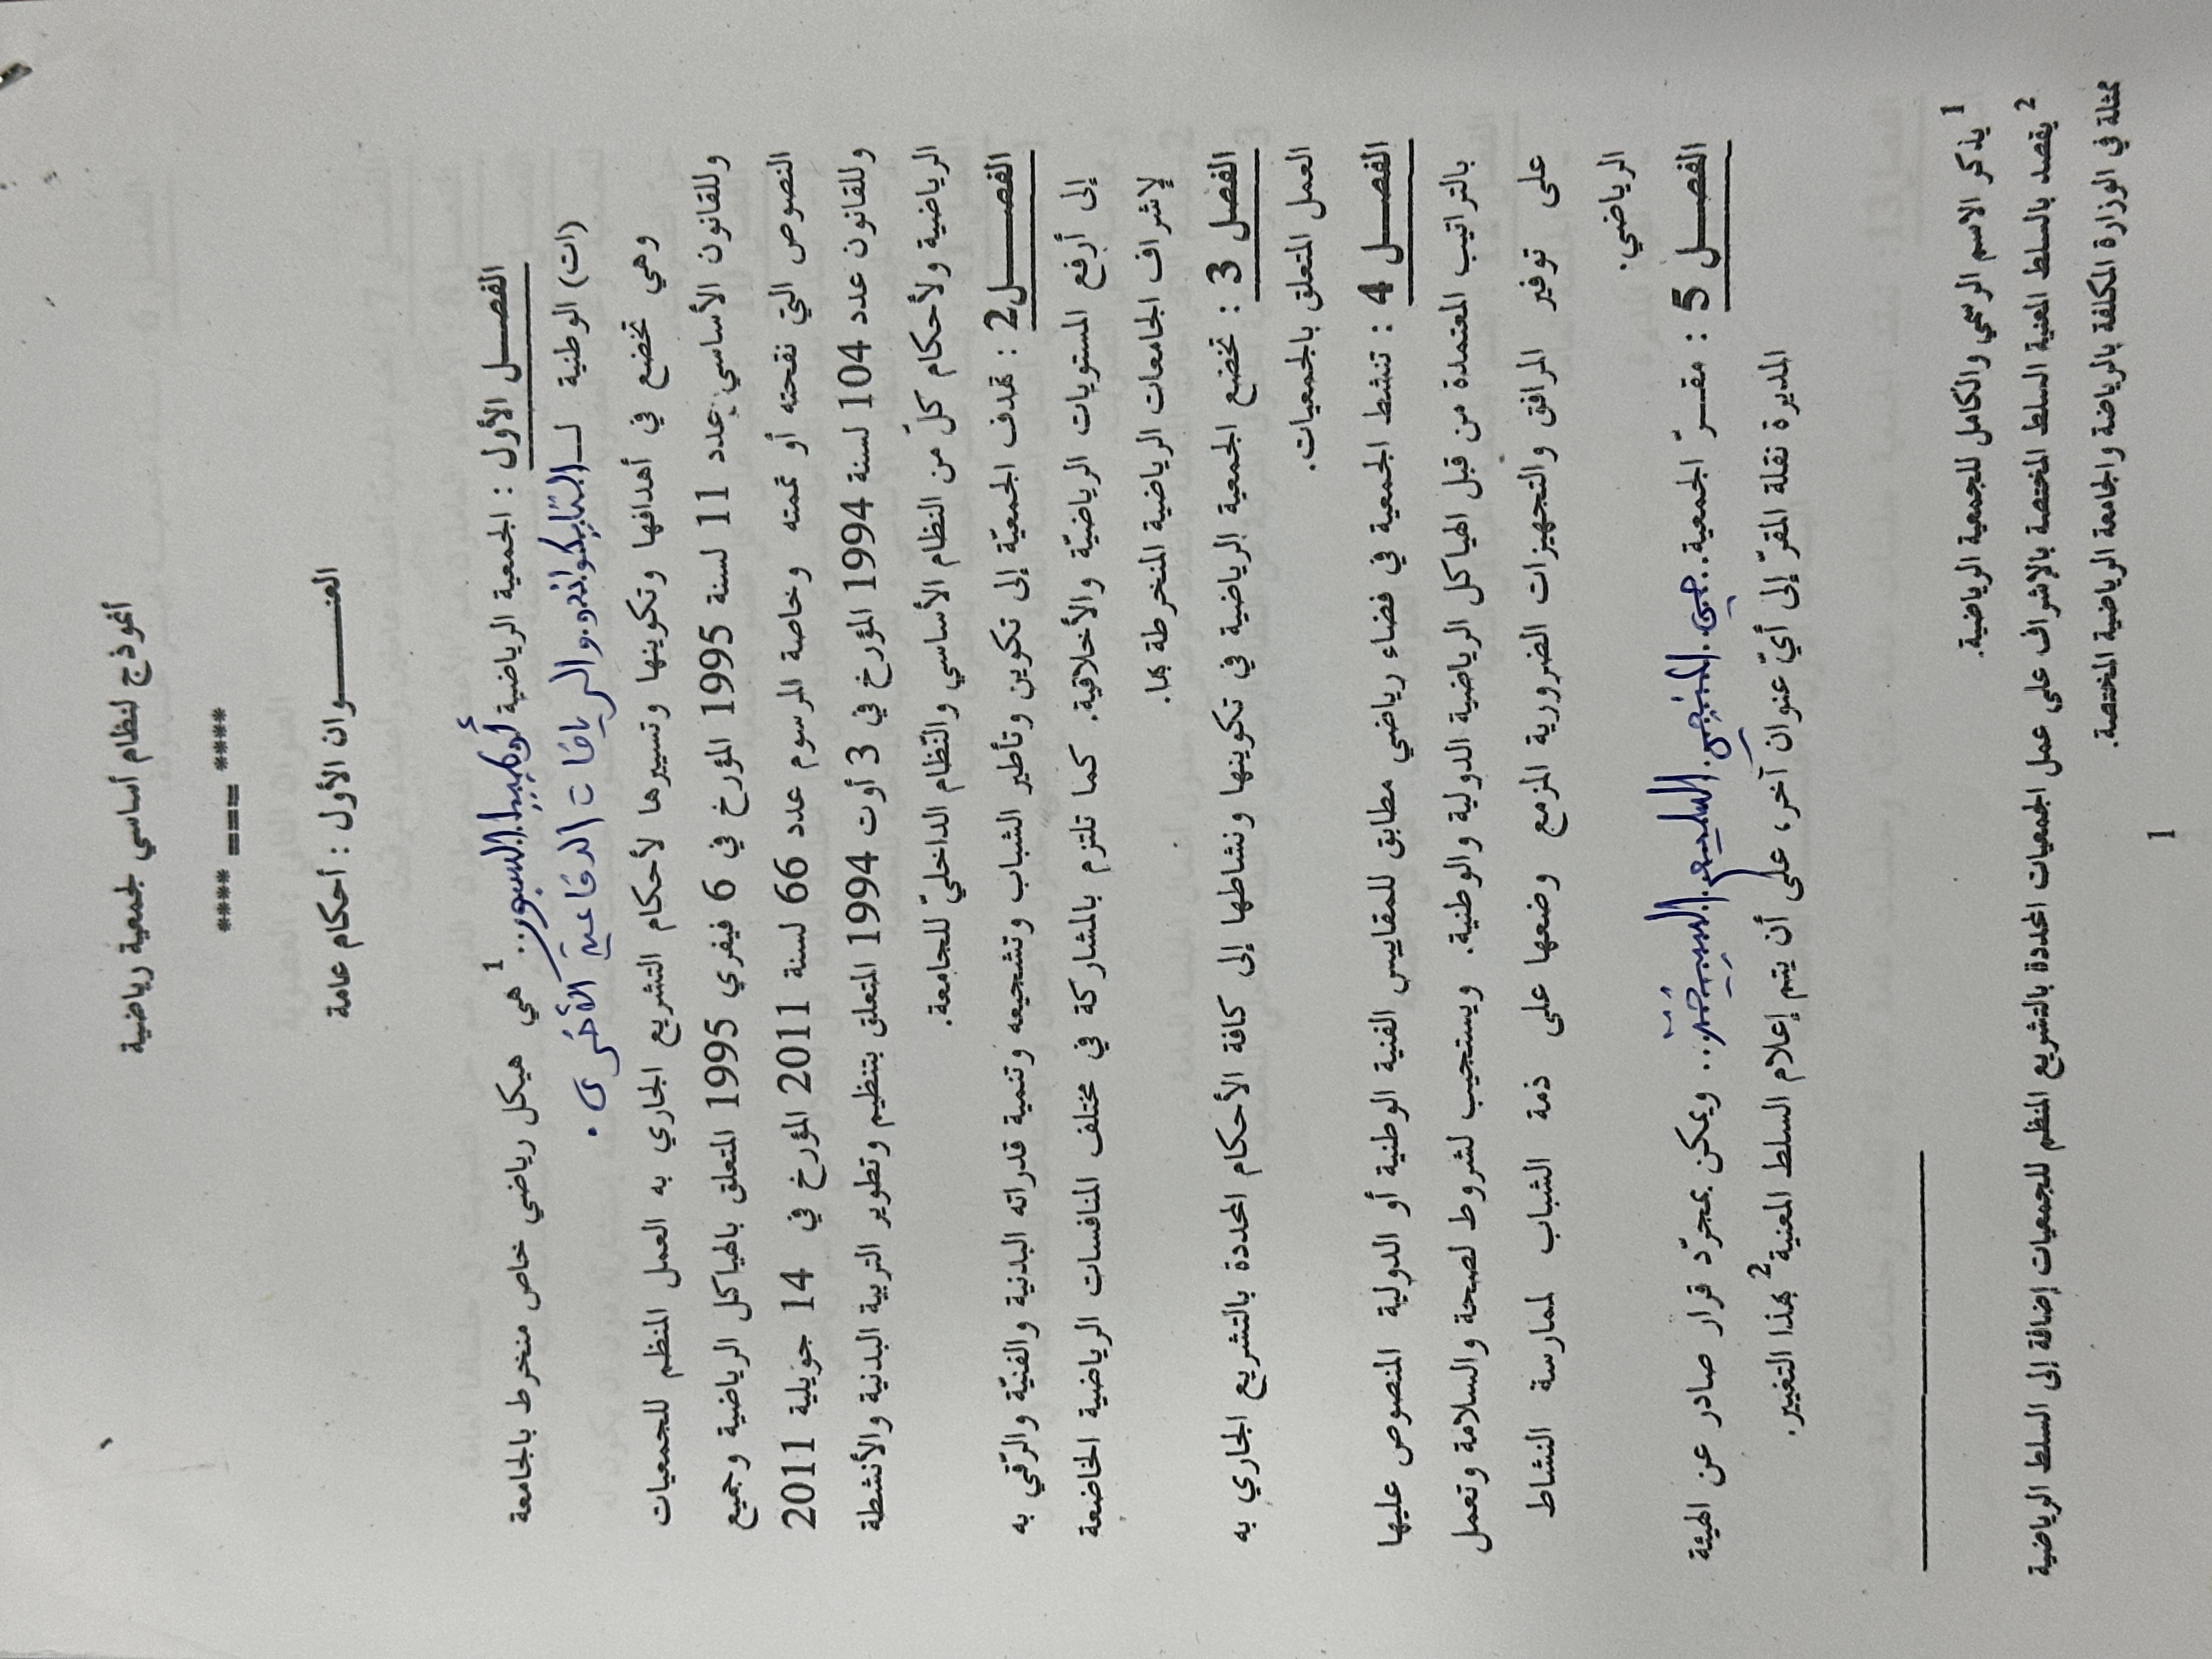 أنموذج لنظام أساسي لجمعية رياضية
**** === ****
العنـــــوان الأول : أحكام عامة
الفصـــل الأول : الجمعية الرياضية أولمبيا السبور..¹ هي هيكل رياضي خاص منخرط بالجامعة
(ات) الوطنية لـ التايكواندو والرياضات الدفاعية الأخرى.
وهي تخضع في أهدافها وتكوينها وتسييرها لأحكام التشريع الجاري به العمل المنظم للجمعيات
وللقانون الأساسي عدد 11 لسنة 1995 المؤرخ في 6 فيفري 1995 المتعلق بالهياكل الرياضية وجميع
النصوص التي نقحته أو تممته وخاصة المرسوم عدد 66 لسنة 2011 المؤرخ في 14 جويلية 2011
وللقانون عدد 104 لسنة 1994 المؤرخ في 3 أوت 1994 المتعلق بتنظيم وتطوير التربية البدنية والأنشطة
الرياضية ولأحكام كلّ من النظام الأساسي والنّظام الداخليّ للجامعة.
الفصـــل2 : تهدف الجمعيّة إلى تكوين وتأطير الشباب وتشجيعه وتنمية قدراته البدنية والفنيّة والرّقي به
إلى أرفع المستويات الرياضيّة والأخلاقية. كما تلتزم بالمشاركة في مختلف المنافسات الرياضية الخاضعة
لإشراف الجامعات الرياضية المنخرطة بها.
الفصل 3 : تخضع الجمعية الرياضية في تكوينها ونشاطها إلى كافة الأحكام المحددة بالتشريع الجاري به
العمل المتعلق بالجمعيات.
الفصـــل 4 : تنشط الجمعية في فضاء رياضي مطابق للمقاييس الفنية الوطنية أو الدولية المنصوص عليها
بالتراتيب المعتمدة من قبل الهياكل الرياضية الدولية والوطنية. ويستجيب لشروط لصحة والسلامة وتعمل
على توفير المرافق والتجهيزات الضرورية المزمع وضعها على ذمة الشباب لممارسة النشاط
الرياضي.
الفصـــل 5 : مقـــرّ الجمعية.. حي .. ويمكن بمجرّد قرار صادر عن الهيئة
المديرة نقلة المقرّ إلى أيّ عنوان آخر، على أن يتم إعلام السلط المعنية² بهذا التغيير.
¹ يذكر الاسم الرسمي والكامل للجمعية الرياضية.
² يقصد بالسلط المعنية السلط المختصة بالإشراف على عمل الجمعيات المحددة بالتشريع المنظم للجمعيات إضافة إلى السلط الرياضية
ممثلة في الوزارة المكلفة بالرياضة والجامعة الرياضية المختصة.
1